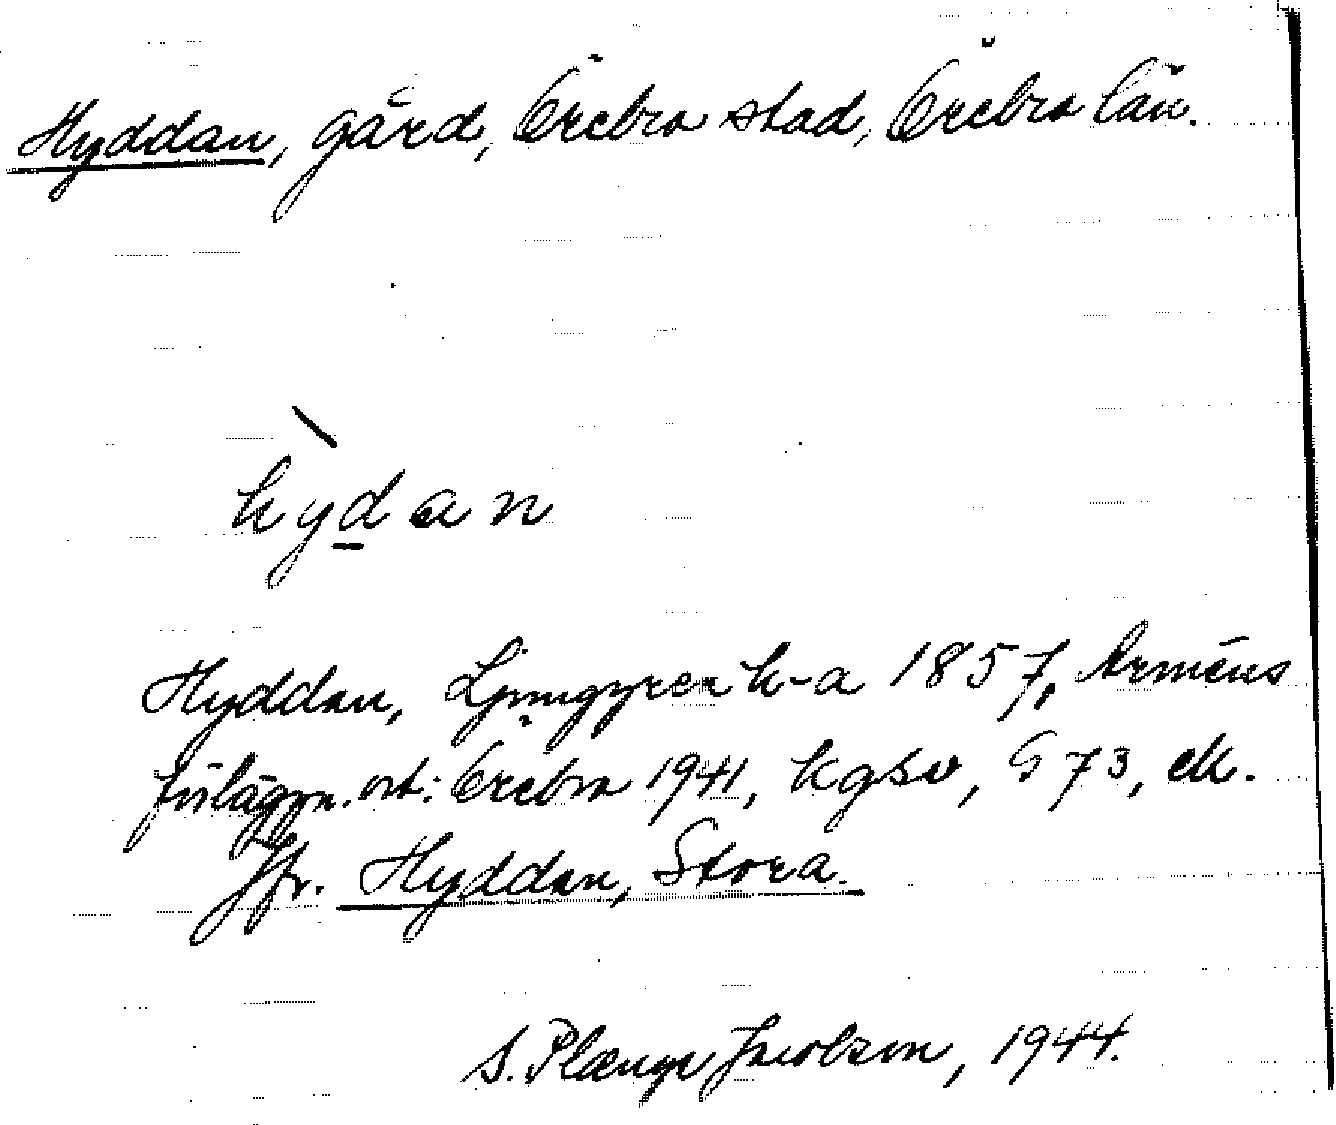 Hyddan, gård, Örebro stad, Örebro län.
hydan
Hyddan, Ljunggren h-a 1857, Arméns
förläggn. ort: Örebro 1941, kgsv, G 73, ek.
Jfr. Hyddan, Stora.
S. Plænge Jacobson, 1944.